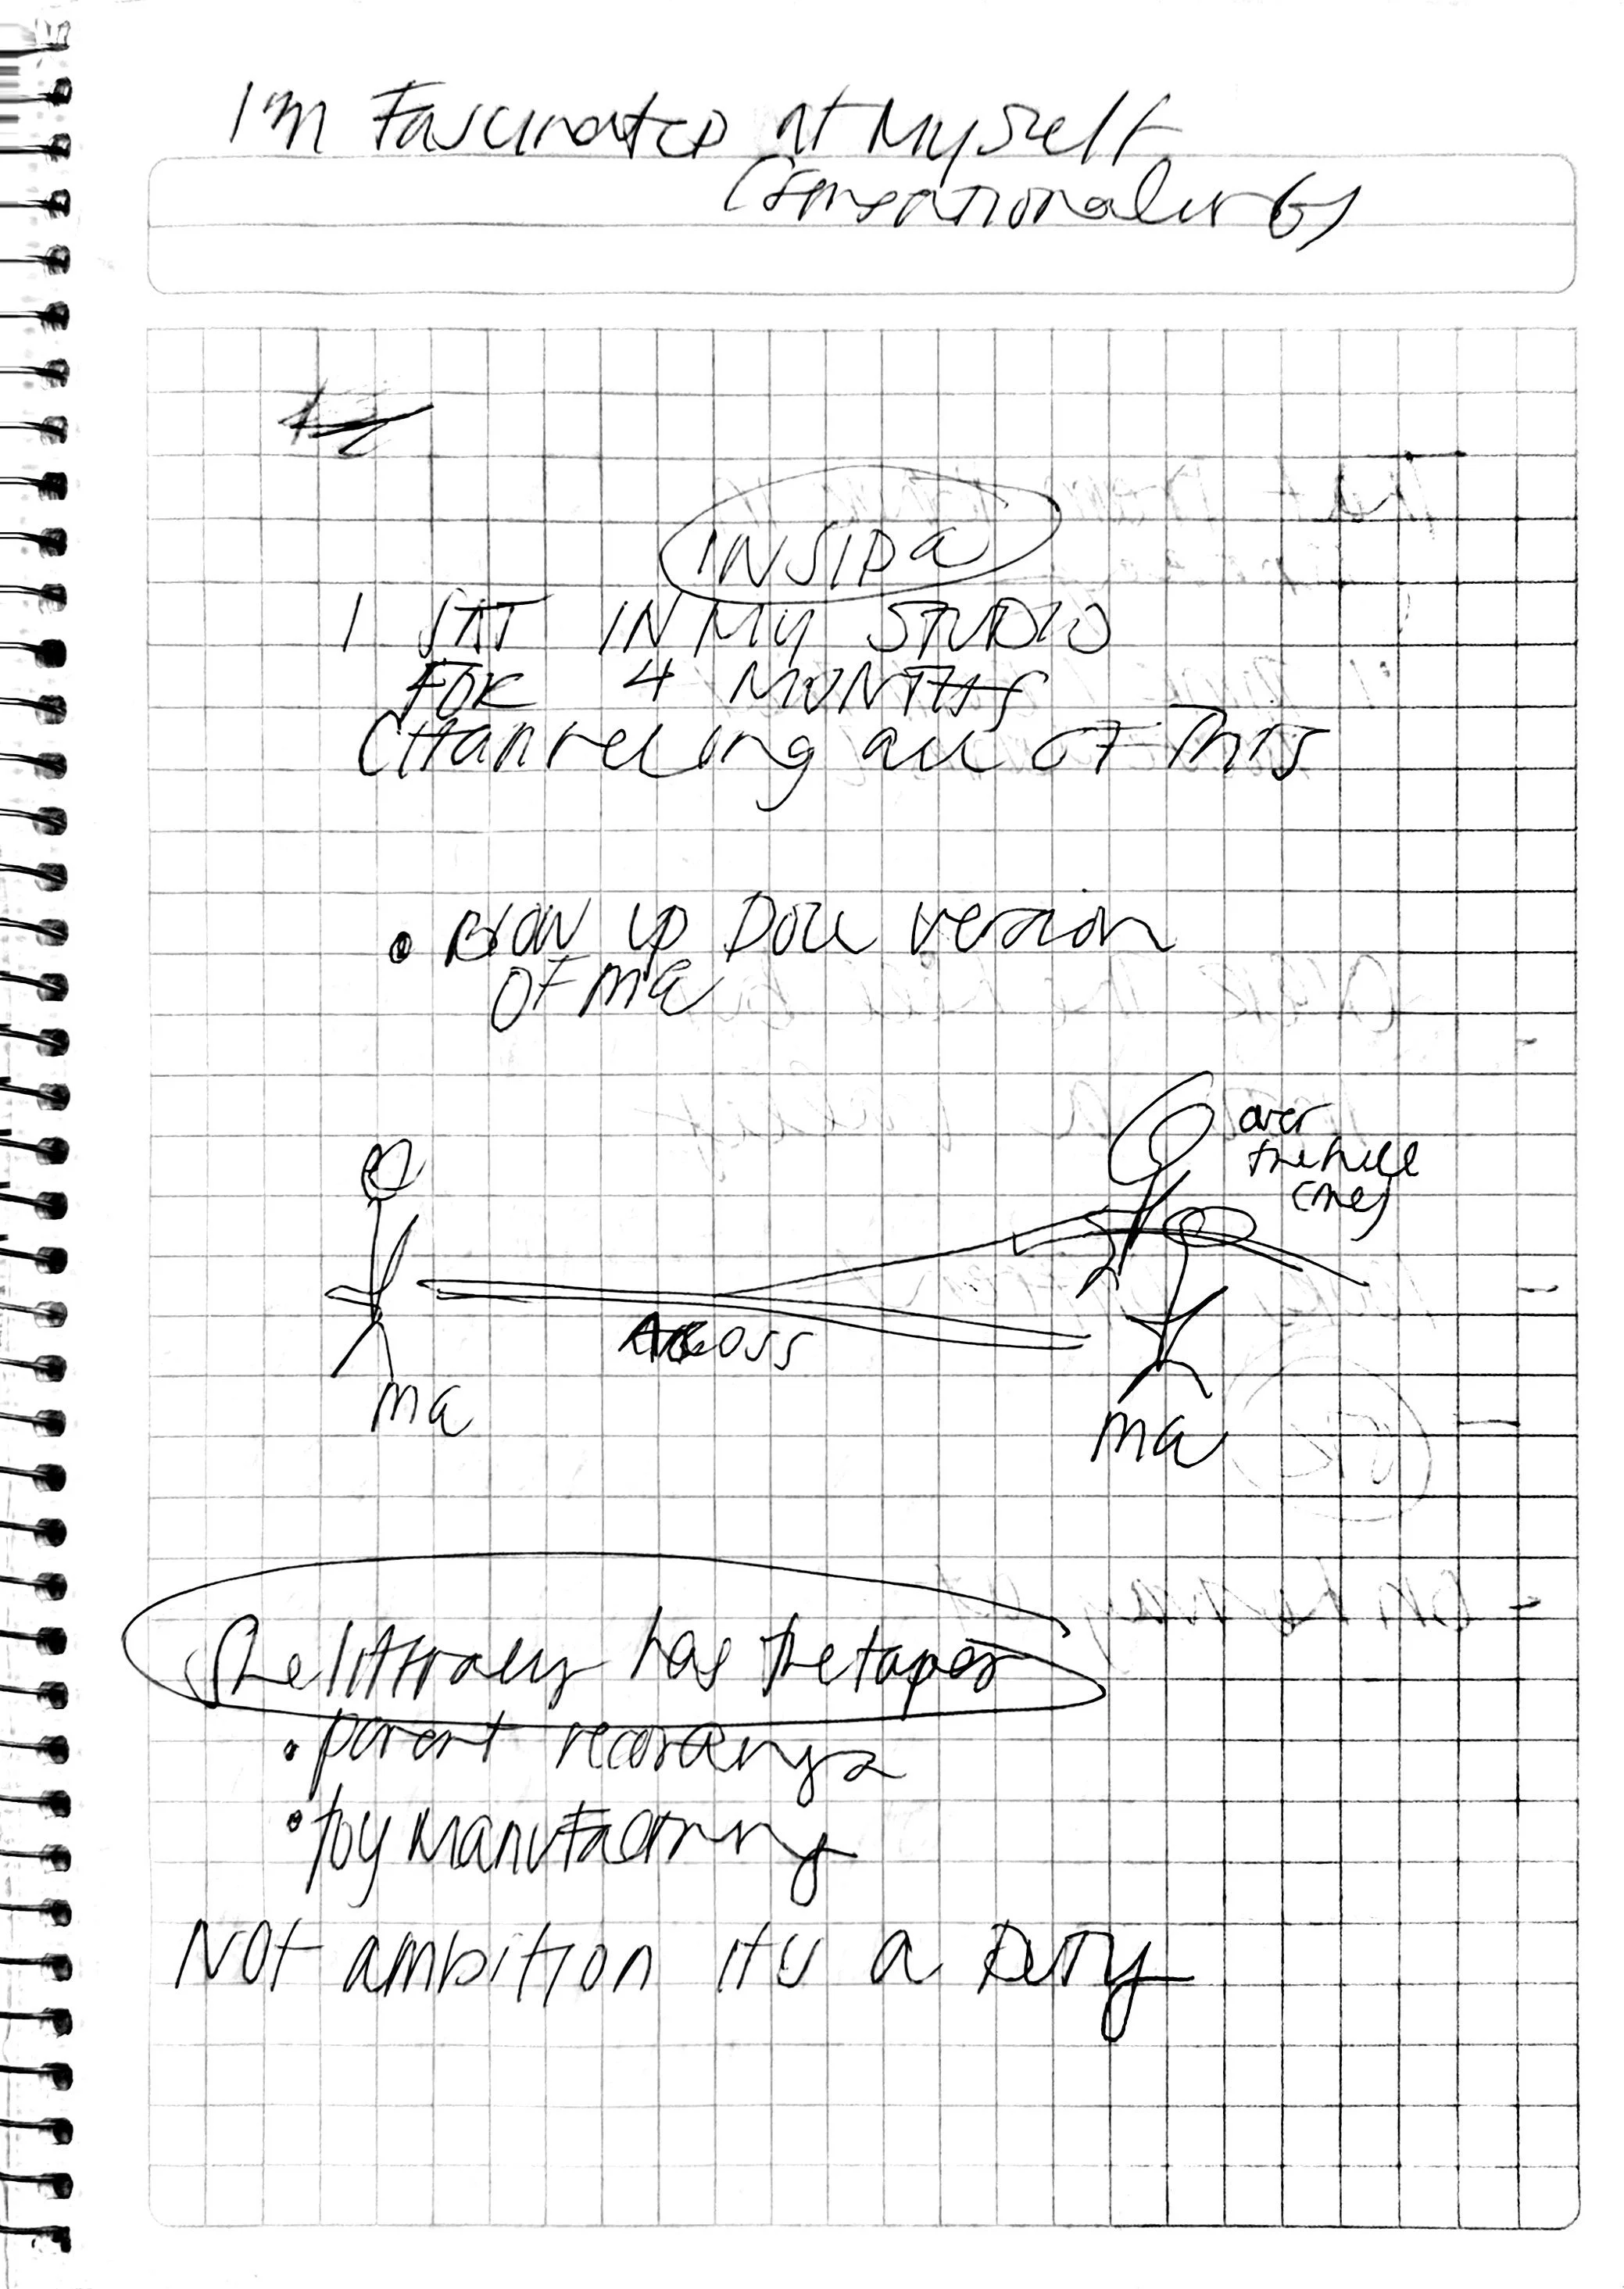 I'm Fascinated at Myself
(Sensationality)
INSIDE
I SAT IN MY STUDIO
FOR 4 MONTHS
Channeling all of This
• Blow up Doll version
OF me
over
the hill
(me)
Across
me
me
She litterally has the tapes
• parent recordings
• toy Manufacturing
Not ambition its a Duty